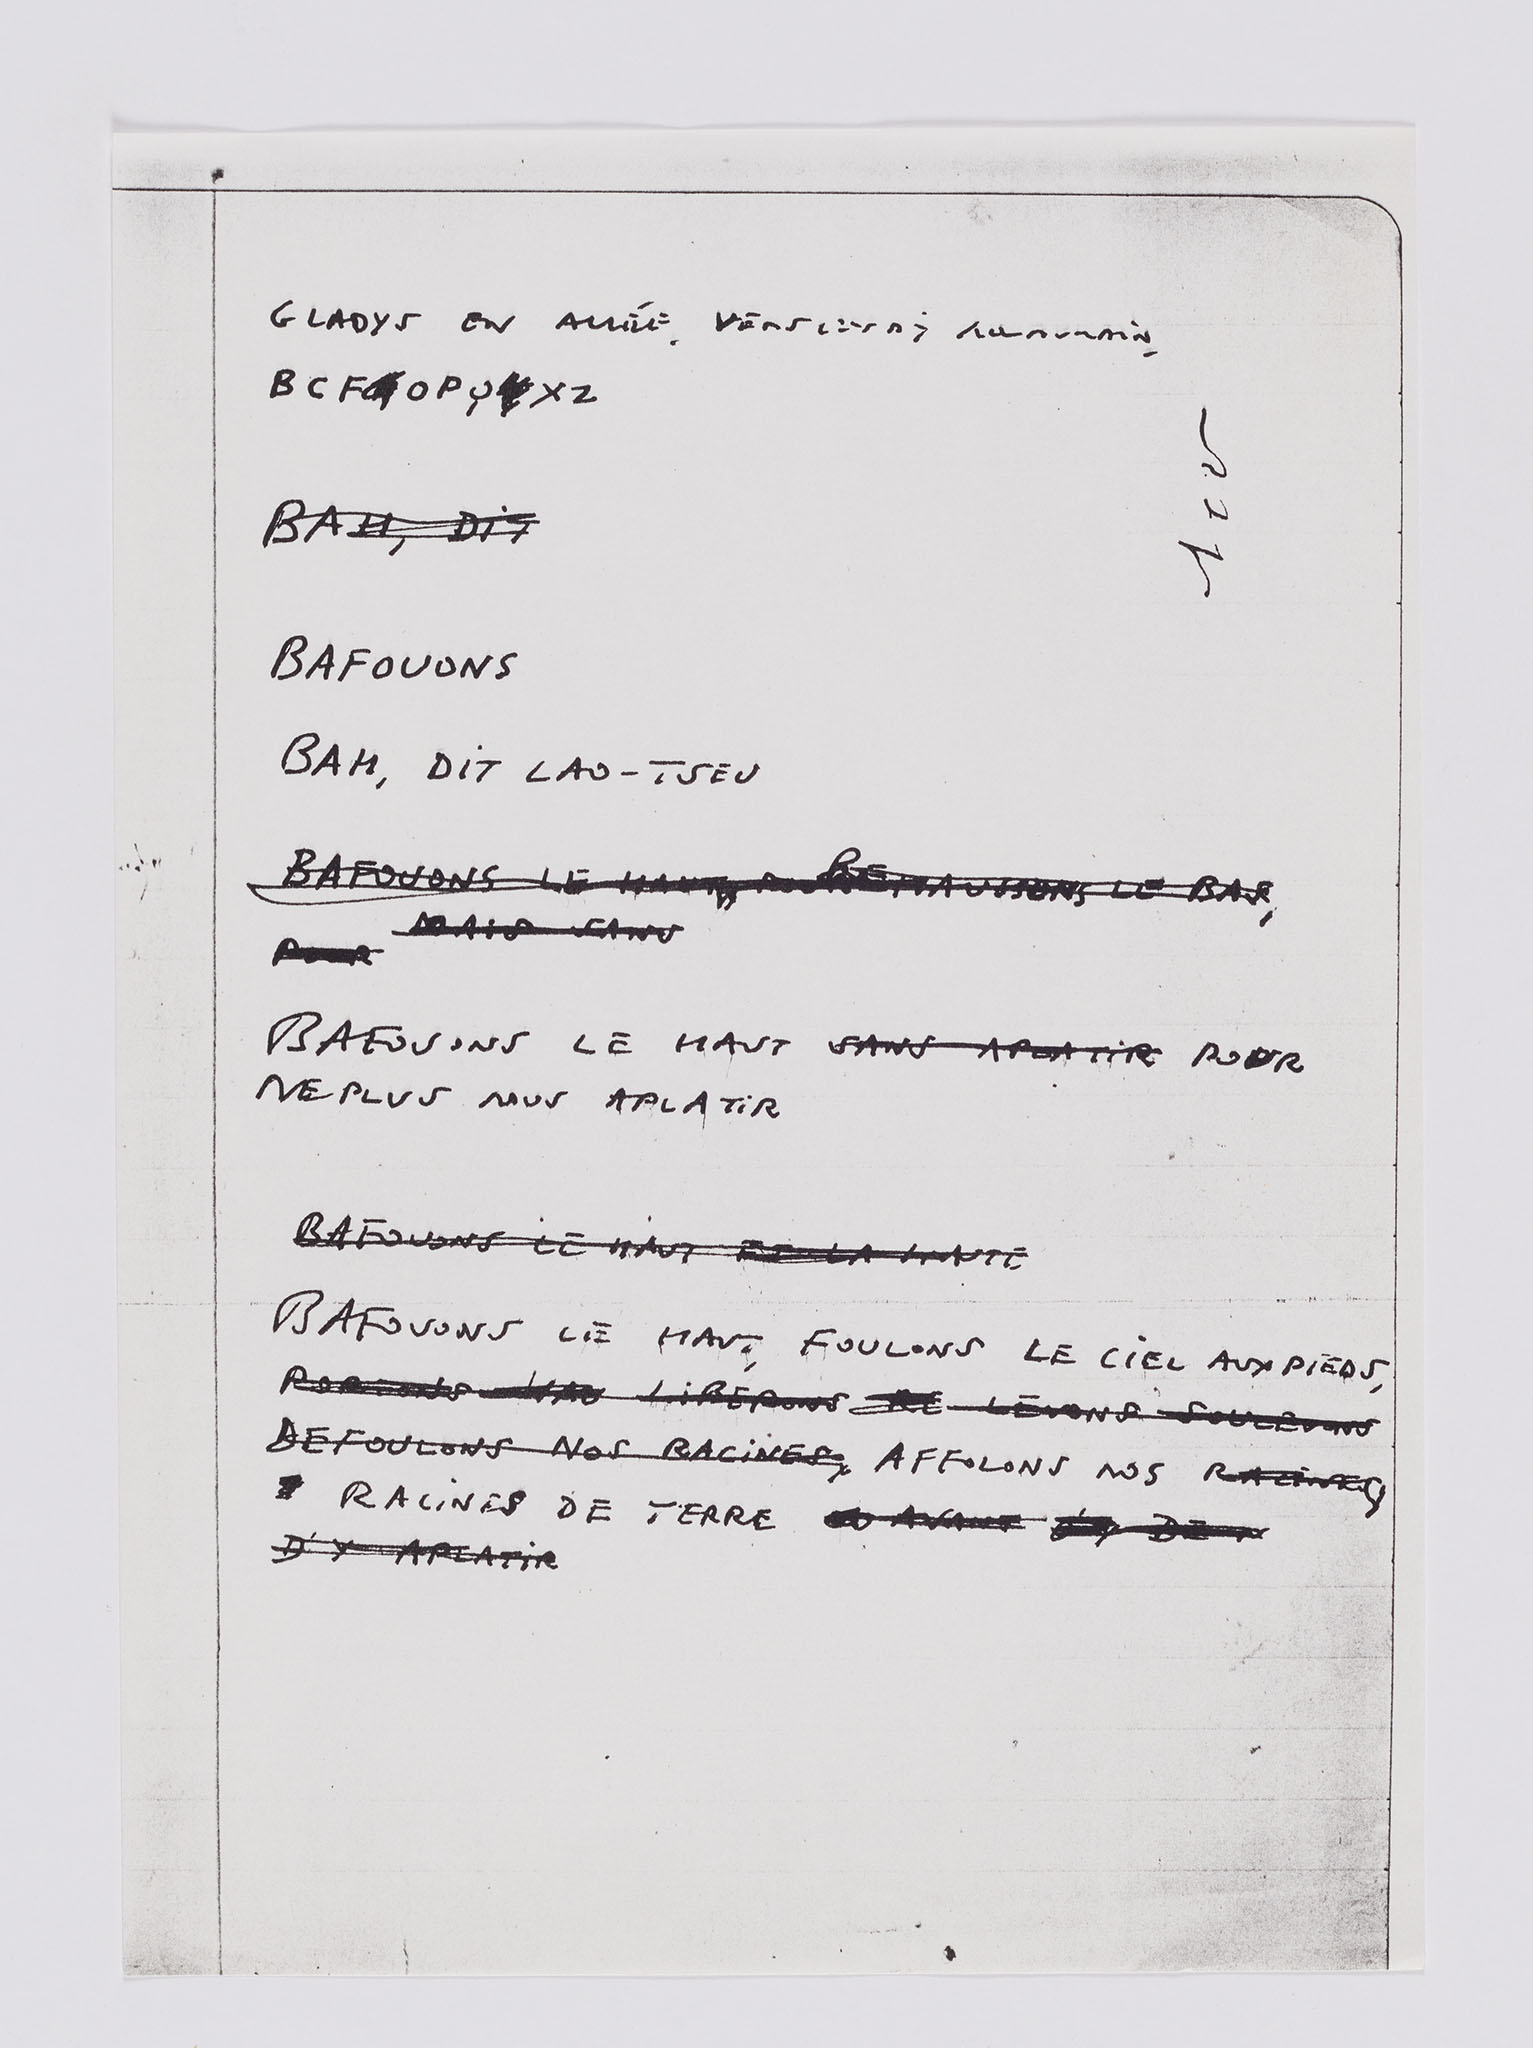 GLADYS EN ALLÉE,
BCF OPQ XZ
BAH, DIT
BAFOUONS
BAH, DIT LAO-TSEU
BAFOUONS LE HAUT, REHAUSSONS LE BAS,
MAIS SANS
POUR
BAFOUONS LE HAUT SANS APLATIR POUR
NE PLUS NOUS APLATIR
BAFOUONS LE HAUT ET LA HAUTE
BAFOUONS LE HAUT, FOULONS LE CIEL AUX PIEDS,
LIBERONS RE LEVONS SOULEVONS
DEFOULONS NOS RACINES, AFFOLONS NOS RACINES
RACINES DE TERRE AVANT D'Y DE
D'Y APLATIR